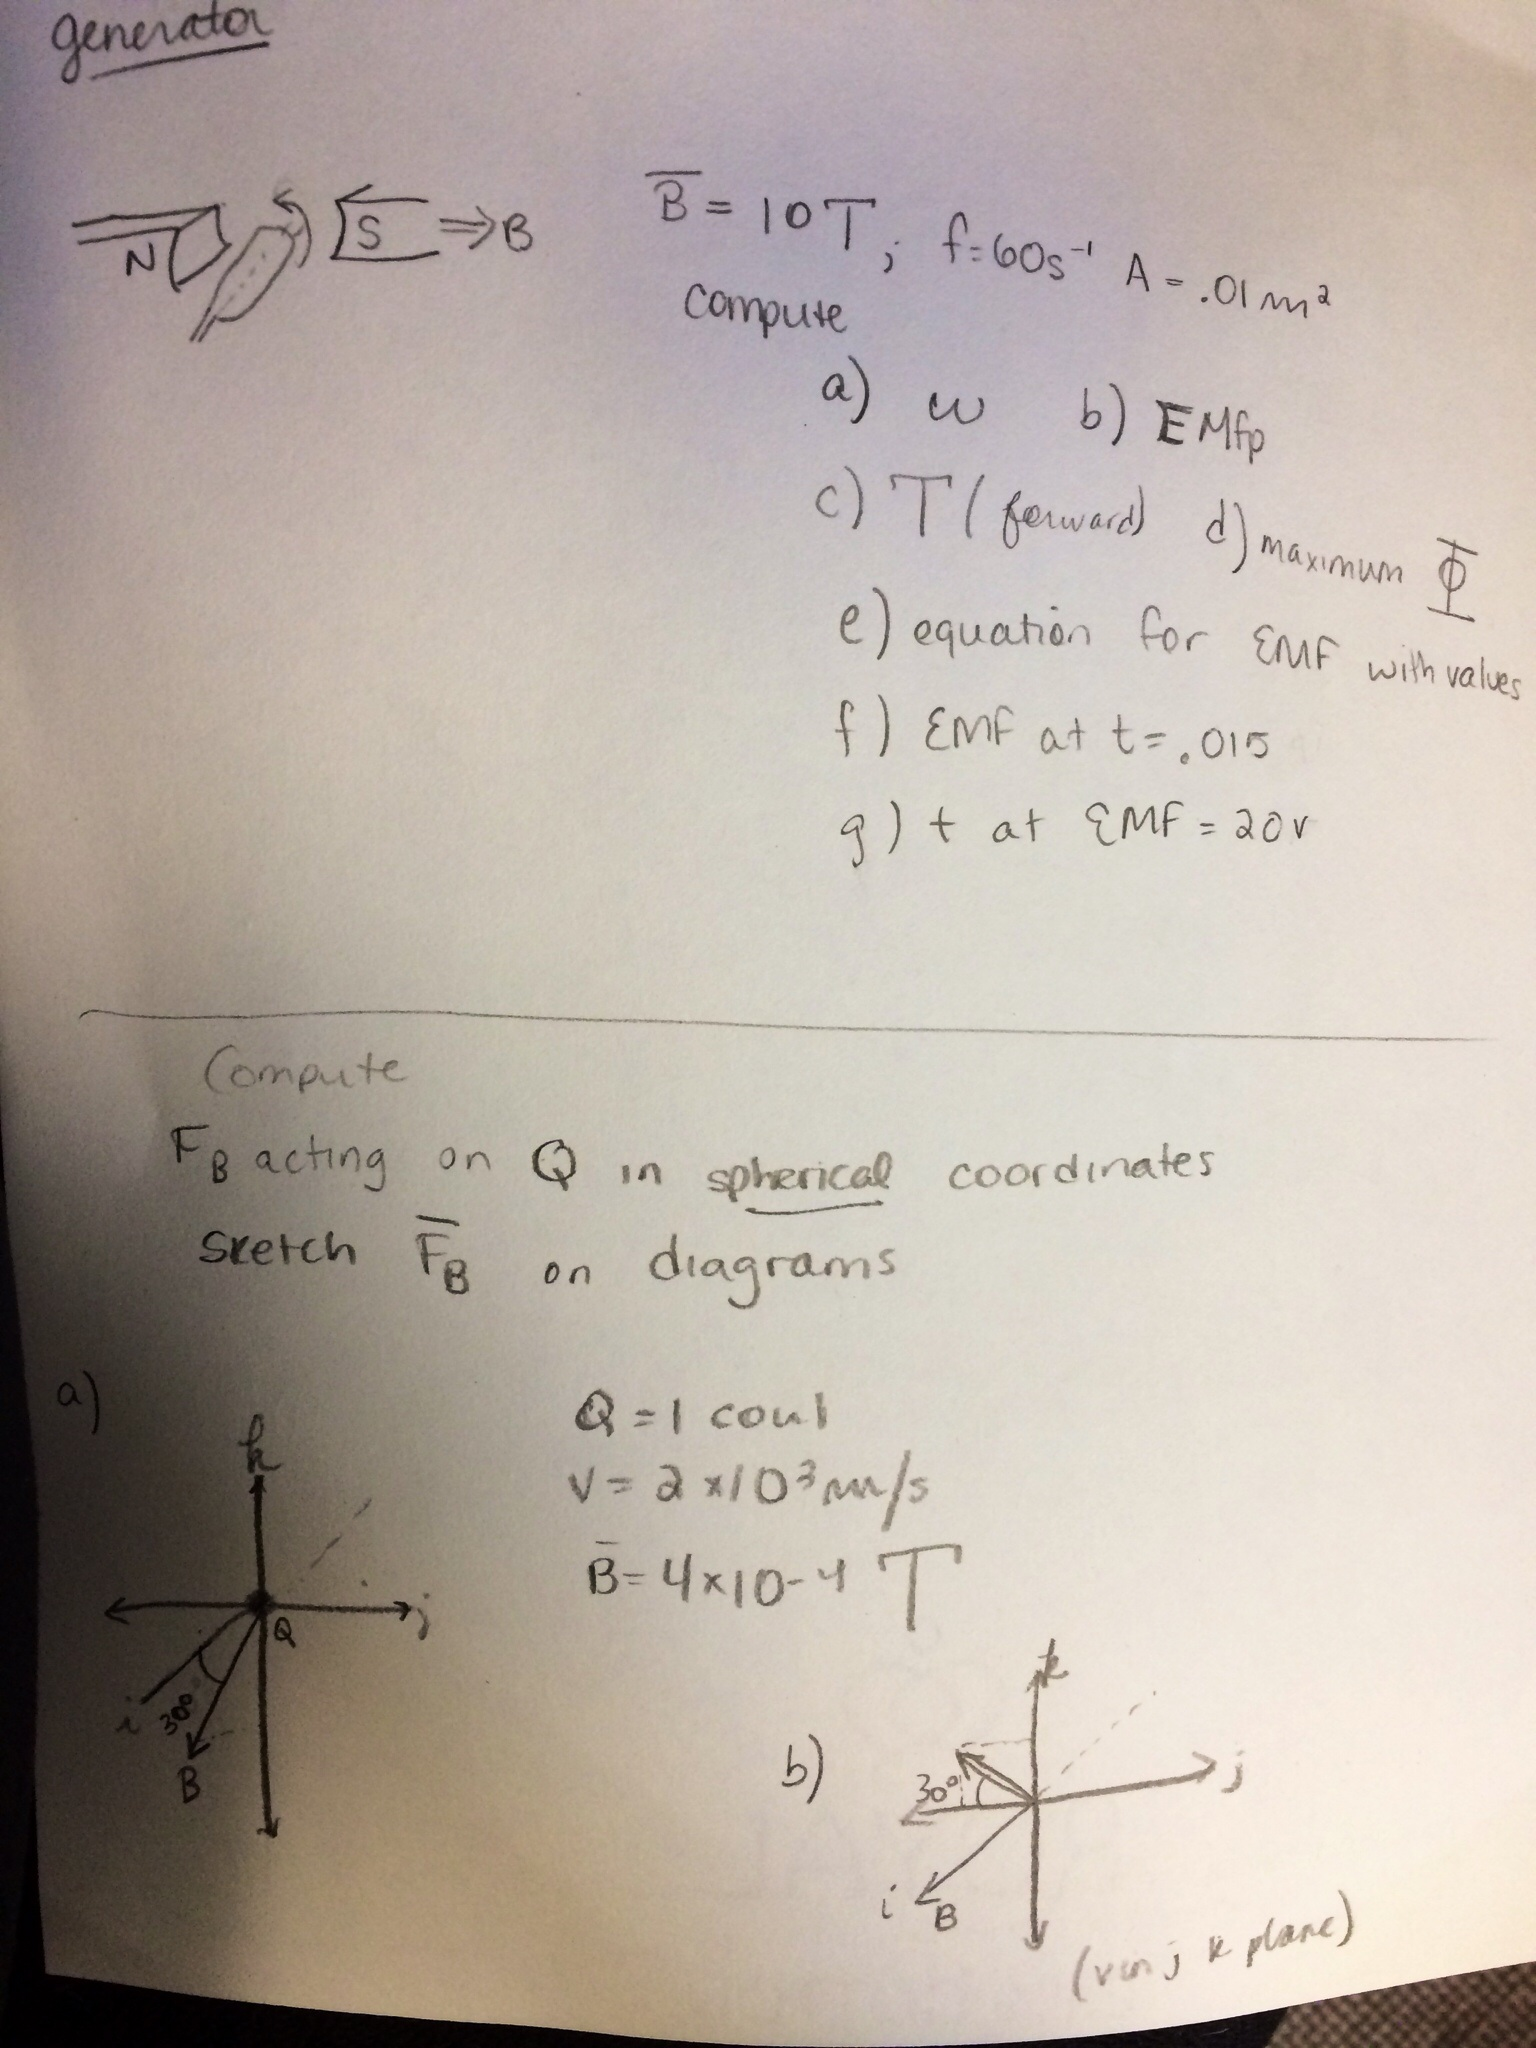 generator
N S ⇒B
B̅ = 10T; f=60s⁻¹ A = .01m²
compute
a) ω b) EMfp
c) T (forward) d) maximum Φ
e) equation for EMF with values
f) EMF at t=.015
g) t at EMF = 20v
Compute
F_B acting on Q in spherical coordinates
Sketch F̅_B on diagrams
a)
k
j
Q
i
30°
B
Q = 1 coul
V = 2 x10³ m/s
B̅ = 4x10-4 T
b)
k
j
30°
i
B
(v in j k plane)